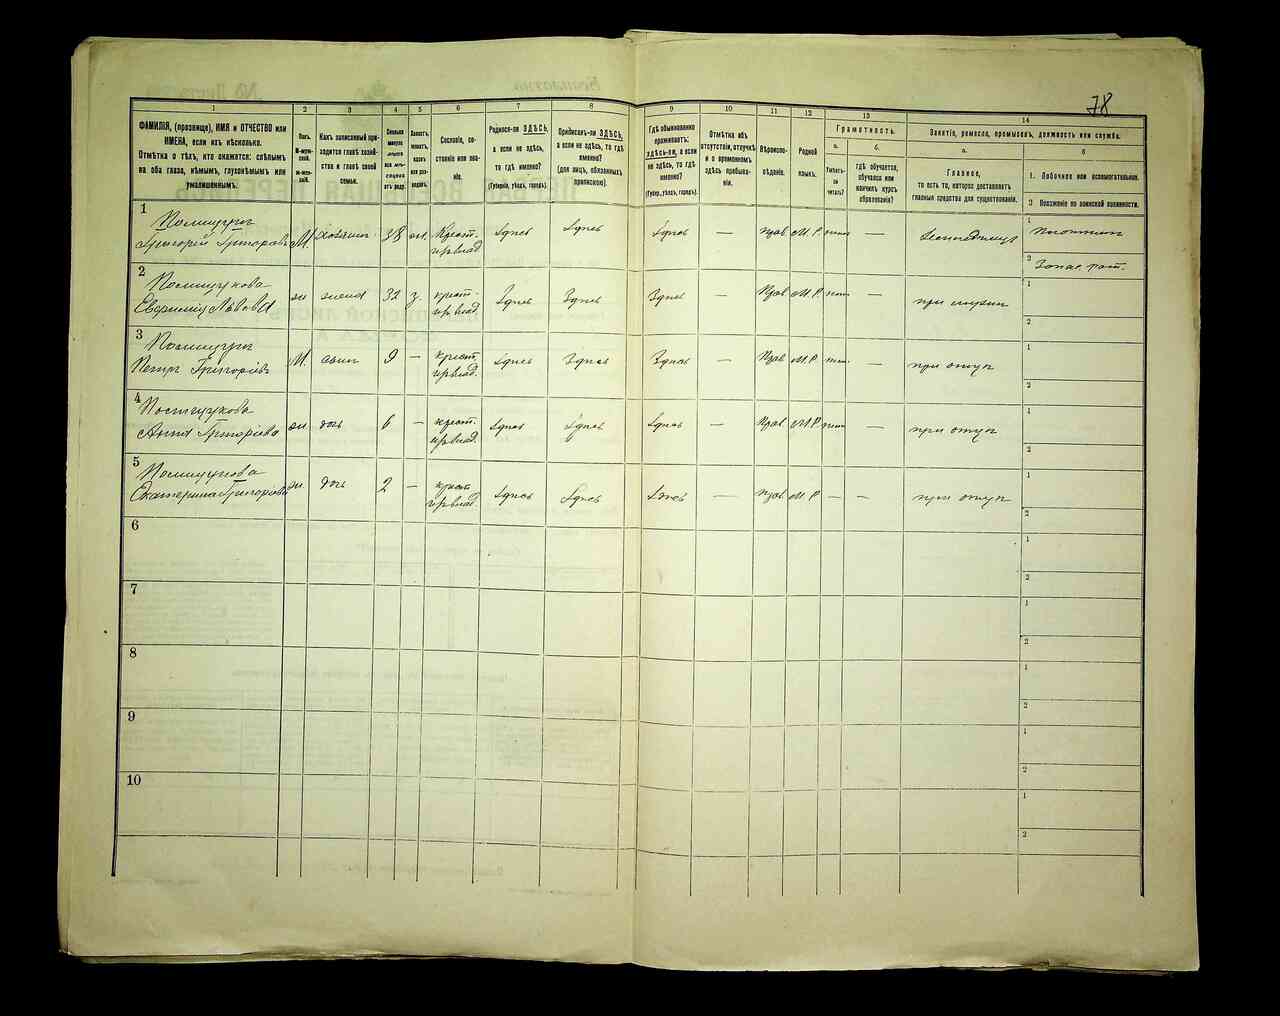 78
1
2
3
4
5
6
7
8
9
10
11
12
13
14
ФАМИЛІЯ, (прозвище), ИМЯ и ОТЧЕСТВО или
ИМЕНА, если ихъ нѣсколько.
Отмѣтка о тѣхъ, кто окажется: слѣпымъ
на оба глаза, нѣмымъ, глухонѣмымъ или
умалишеннымъ.
Полъ.
М-муж-
ской.
Ж-жен-
скій.
Какъ записанный при-
ходится главѣ хозяй-
ства и главѣ своей
семьи.
Сколько
минуло
лѣтъ
или мѣ-
сяцевъ
отъ роду.
Холостъ,
женатъ,
вдовъ
или раз-
веденъ.
Сословіе, со-
стояніе или зва-
ніе.
Родился-ли ЗДѢСЬ,
а если не здѣсь,
то гдѣ именно?
(Губернія, уѣздъ, городъ).
Приписанъ-ли ЗДѢСЬ,
а если не здѣсь, то гдѣ
именно?
(для лицъ, обязанныхъ
припискою).
Гдѣ обыкновенно
проживаетъ:
ЗДѢСЬ-ли, а если
не здѣсь, то гдѣ
именно?
(Губер., уѣздъ, городъ).
Отмѣтка объ
отсутствіи, отлучкѣ
и о временномъ
здѣсь пребыва-
ніи.
Вѣроиспо-
вѣданіе.
Родной
языкъ.
Грамотность.
а.
б.
Умѣетъ-
ли
читать?
гдѣ обучается,
обучался или
кончилъ курсъ
образованія?
Занятіе, ремесло, промыселъ, должность или служба.
а.
б
Главное,
то есть то, которое доставляетъ
главныя средства для существованія.
1. Побочное или вспомогательное.
2 Положеніе по воинской повинности.
1
Григорій Григоровъ М. хозяинъ 38 Крест. Здѣсь Здѣсь Здѣсь — Прав. М.Р. —
1
2 Запас. рат.
2
Львова жена 32 крест. Здѣсь Здѣсь Здѣсь — Прав. М.Р. — при мужѣ
1
2
3
Петръ Григоріевъ М. сынъ 9 — крест. Здѣсь Здѣсь Здѣсь — Прав. М.Р. — при отцѣ
1
2
4
Анна Григоріева ж. дочь 6 — крест. Здѣсь Здѣсь Здѣсь — Прав. М.Р. — при отцѣ
1
2
5
Екатерина Григоріева ж. дочь 2 — крест. Здѣсь Здѣсь Здѣсь — Прав. М.Р. — — при отцѣ
1
2
6
1
2
7
1
2
8
1
2
9
1
2
10
1
2